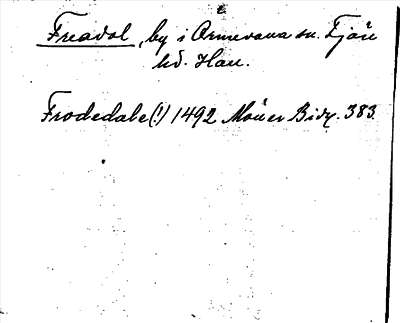 Freadal, by i Ormevana sn. Tjöre
hd. Hall.
Frodedale(!) 1492 Möller Bidr. 383.